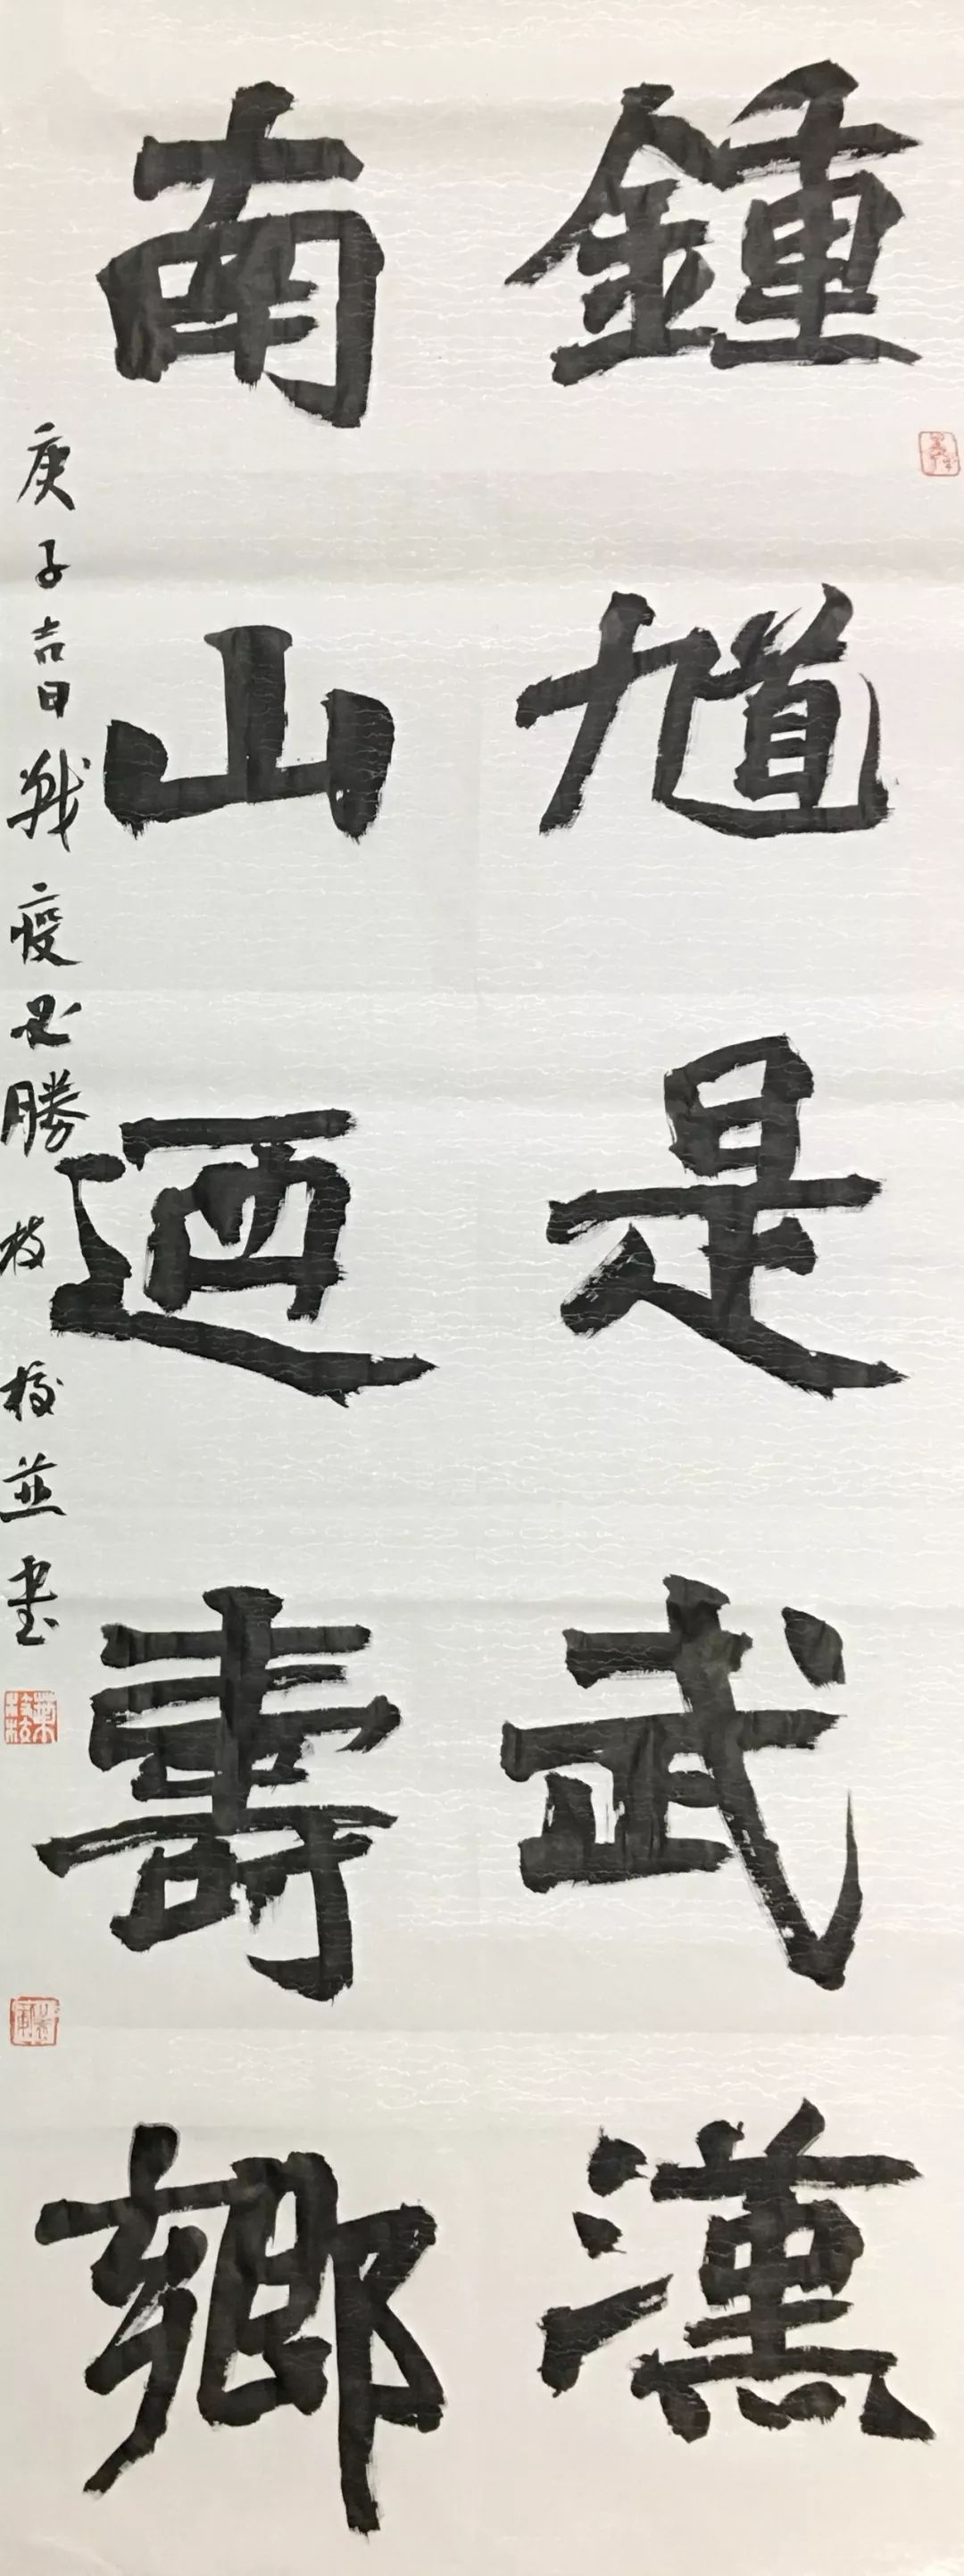 鍾馗是武漢
南山迺壽鄉
庚子吉日戰疫必勝枝枝並書